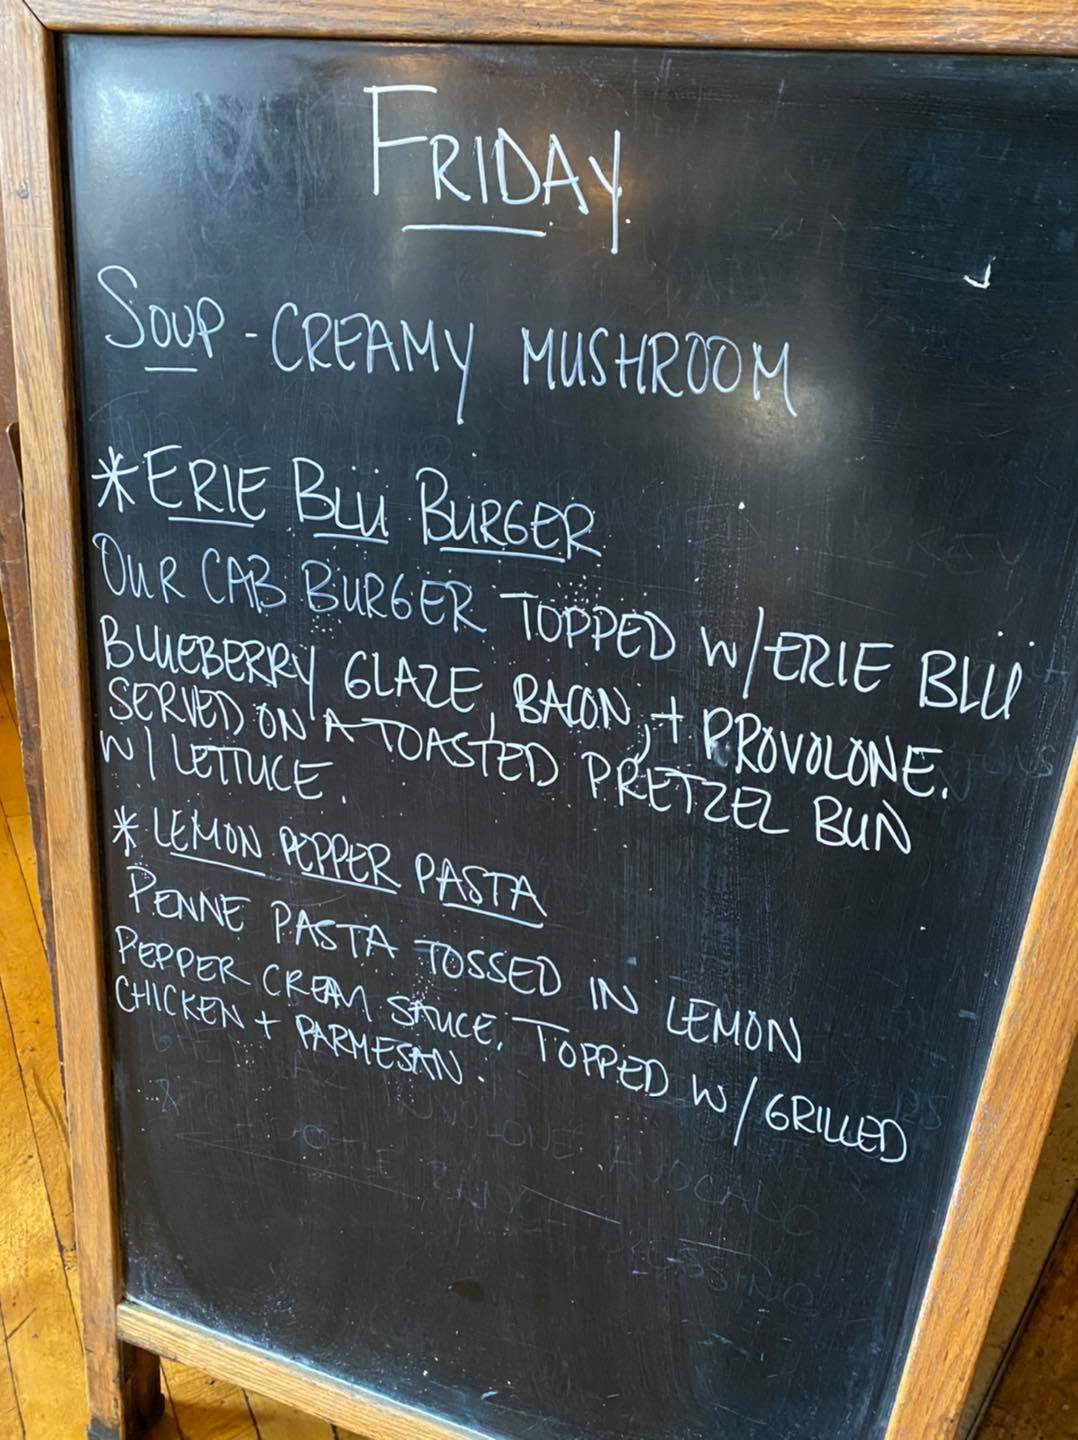 FRIDAY
SOUP - CREAMY MUSHROOM
* ERIE BLU BURGER
OUR CAB BURGER TOPPED W/ ERIE BLU
BLUEBERRY GLAZE, BACON, + PROVOLONE.
SERVED ON A TOASTED PRETZEL BUN
W/ LETTUCE.
* LEMON PEPPER PASTA
PENNE PASTA TOSSED IN LEMON
PEPPER CREAM SAUCE. TOPPED W/ GRILLED
CHICKEN + PARMESAN.